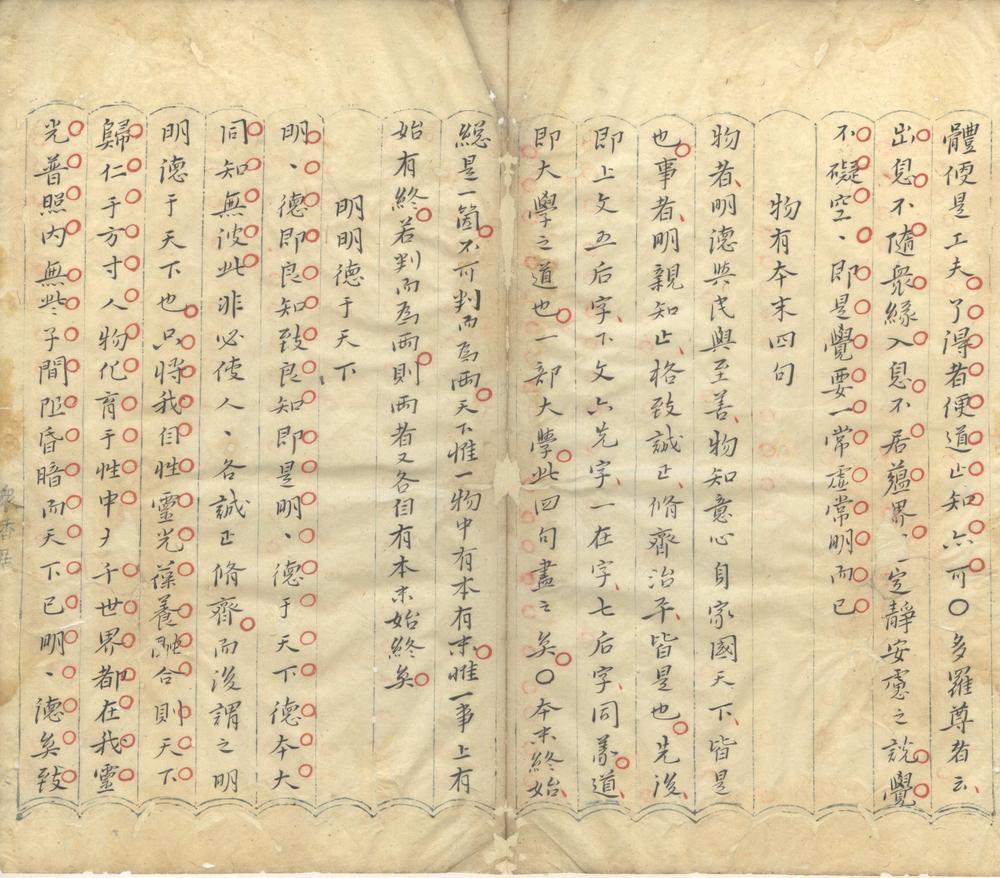 體便是工夫了得者便道止知亦可〇多羅尊者云
出息不隨衆緣入息不居蘊界、定靜安慮之說覺
不礙空、即是覺要一常虛常明而已
物有本末四句
物者明德與民與至善物知意心身家國天下皆是
也事者明親知止格致誠正脩齊治平皆是也先後
即上文五后字下文六先字一在字七后字同義道
即大學之道也一部大學此四句盡之矣〇本末終始
総是一箇不可判而為兩天下惟一物中有本有末惟一事上有
始有終若判而為兩則兩者又各自有本末始終矣
明明德于天下
明、德即良知致良知即是明、德于天下德本大
同知無彼此非必使人、各誠正脩齊而後謂之明
明德于天下也只將我自性靈光葆養融合則天下
歸仁于方寸人物化育于性中大千世界都在我靈
光普照內無些子間阻昏暗而天下已明、德矣致